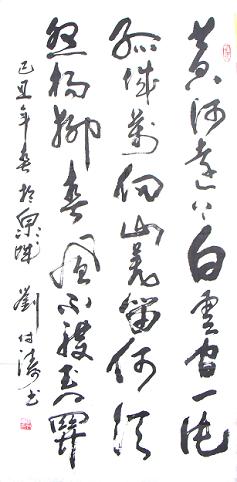 黄河遠上白雲間一片
孤城萬仞山羌笛何須
怨楊柳春風不度玉門關
己丑年春於泉城 劉付濤书